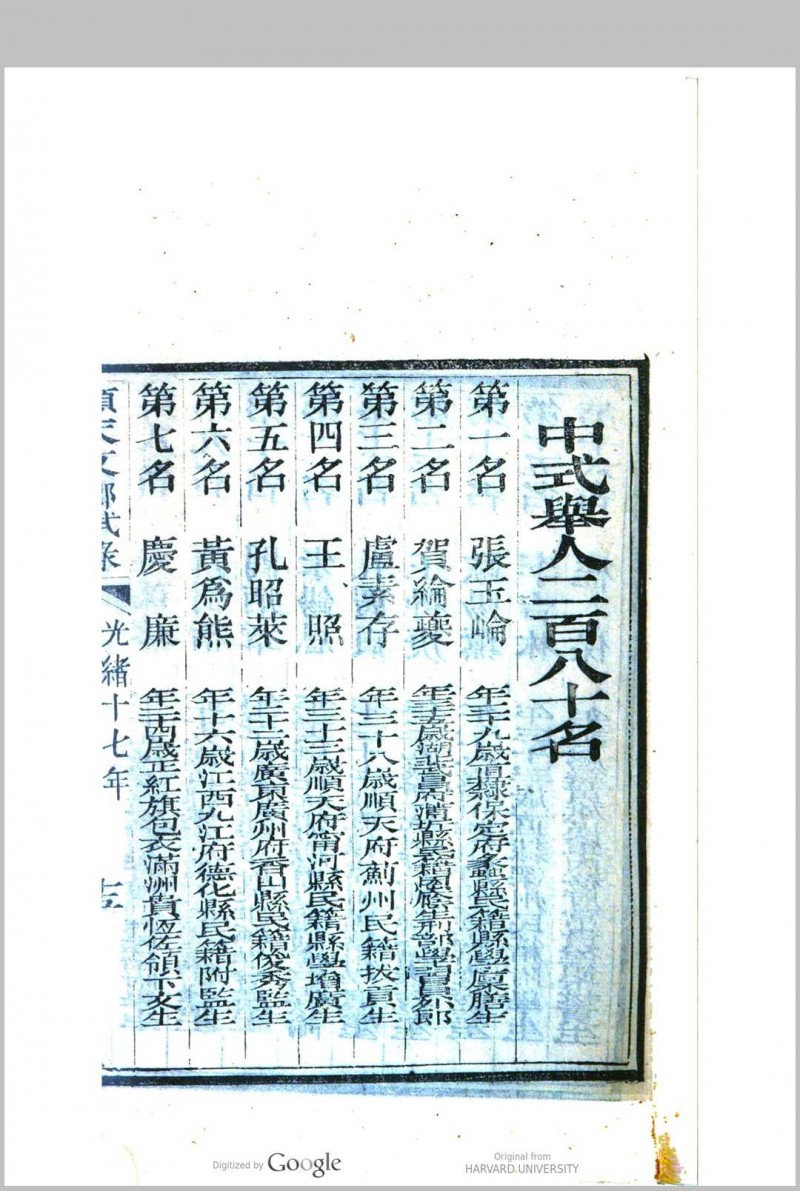 中式舉人二百八十名
第一名 張玉崘 年二十九歲直隸保定府蠡縣民籍縣學廩膳生
第二名 賀綸夔 年三十五歲湖北武昌府蒲圻縣民籍廕生刑部學習員外郎
第三名 盧素存 年三十八歲順天府薊州民籍拔貢生
第四名 王照 年三十三歲順天府甯河縣民籍縣學增廣生
第五名 孔昭萊 年二十一歲廣東廣州府香山縣民籍俊秀監生
第六名 黃爲熊 年十六歲江西九江府德化縣民籍附監生
第七名 慶廉 年二十四歲正紅旗包衣滿洲貴恆佐領下文生
順天文鄉試錄 光緒十七年
Digitized by Google
Original from
HARVARD UNIVERSITY